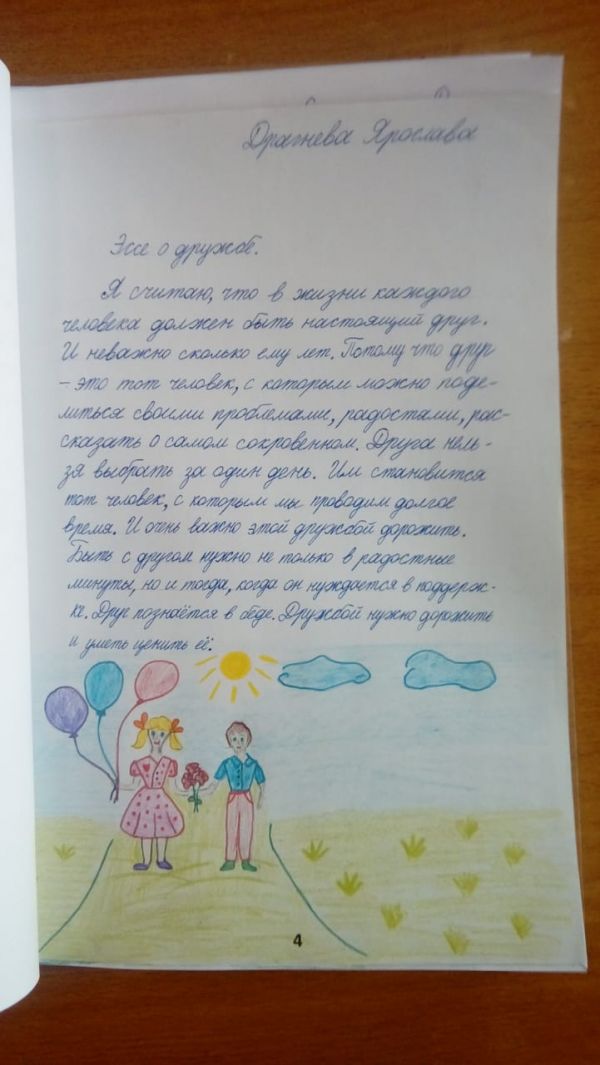 Драгнева Ярослава
Эссе о дружбе.
Я считаю, что в жизни каждого
человека должен быть настоящий друг.
И неважно сколько ему лет. Потому что друг
– это тот человек, с которым можно поде-
литься своими проблемами, радостями, рас-
сказать о самом сокровенном. Друга нель-
зя выбрать за один день. Им становится
тот человек, с которым мы проводим долгое
время. И очень важно этой дружбой дорожить.
Быть с другом нужно не только в радостные
минуты, но и тогда, когда он нуждается в поддерж-
ке. Друг познаётся в беде. Дружбой нужно дорожить
и уметь ценить её.
4